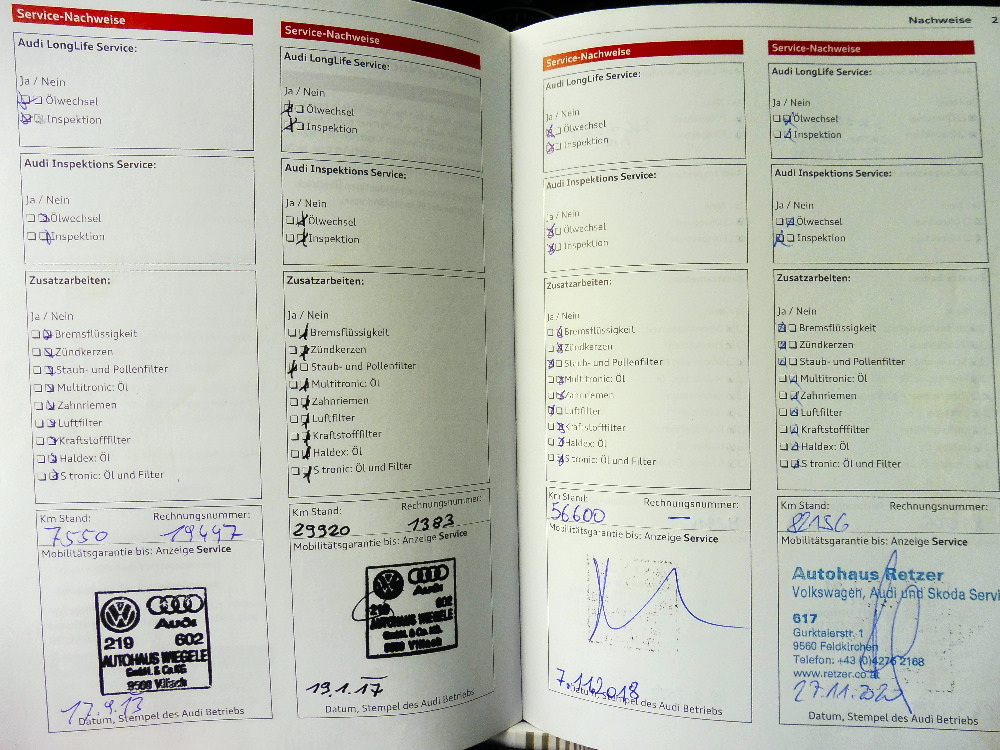 Nachweise 2
Service-Nachweise
Audi LongLife Service:
Ja / Nein
Ölwechsel
Inspektion
Audi Inspektions Service:
Ja / Nein
Ölwechsel
Inspektion
Zusatzarbeiten:
Ja / Nein
Bremsflüssigkeit
Zündkerzen
Staub- und Pollenfilter
Multitronic: Öl
Zahnriemen
Luftfilter
Kraftstofffilter
Haldex: Öl
S tronic: Öl und Filter
Km Stand: Rechnungsnummer:
7550 19447
Mobilitätsgarantie bis: Anzeige Service
Audi
219 602
AUTOHAUS WIEGELE
GmbH. & Co.KG
9500 Villach
17.9.13
Datum, Stempel des Audi Betriebs
Service-Nachweise
Audi LongLife Service:
Ja / Nein
Ölwechsel
Inspektion
Audi Inspektions Service:
Ja / Nein
Ölwechsel
Inspektion
Zusatzarbeiten:
Ja / Nein
Bremsflüssigkeit
Zündkerzen
Staub- und Pollenfilter
Multitronic: Öl
Zahnriemen
Luftfilter
Kraftstofffilter
Haldex: Öl
S tronic: Öl und Filter
Km Stand: Rechnungsnummer:
29320 1383
Mobilitätsgarantie bis: Anzeige Service
Audi
219 602
AUTOHAUS WIEGELE
GmbH. & Co. KG
9500 Villach
19.1.17
Datum, Stempel des Audi Betriebs
Service-Nachweise
Audi LongLife Service:
Ja / Nein
Ölwechsel
Inspektion
Audi Inspektions Service:
Ja / Nein
Ölwechsel
Inspektion
Zusatzarbeiten:
Ja / Nein
Bremsflüssigkeit
Zündkerzen
Staub- und Pollenfilter
Multitronic: Öl
Zahnriemen
Luftfilter
Kraftstofffilter
Haldex: Öl
S tronic: Öl und Filter
Km Stand: Rechnungsnummer:
56600 —
Mobilitätsgarantie bis: Anzeige Service
Datum, Stempel des Audi Betriebs
Service-Nachweise
Audi LongLife Service:
Ja / Nein
Ölwechsel
Inspektion
Audi Inspektions Service:
Ja / Nein
Ölwechsel
Inspektion
Zusatzarbeiten:
Ja / Nein
Bremsflüssigkeit
Zündkerzen
Staub- und Pollenfilter
Multitronic: Öl
Zahnriemen
Luftfilter
Kraftstofffilter
Haldex: Öl
S tronic: Öl und Filter
Km Stand: Rechnungsnummer:
82156
Mobilitätsgarantie bis: Anzeige Service
Autohaus Retzer
Volkswagen, Audi und Skoda Servi
617
Gurktalerstr. 1
9560 Feldkirchen
Telefon: +43 (0)4276 2168
www.retzer.co.at
Datum, Stempel des Audi Betriebs